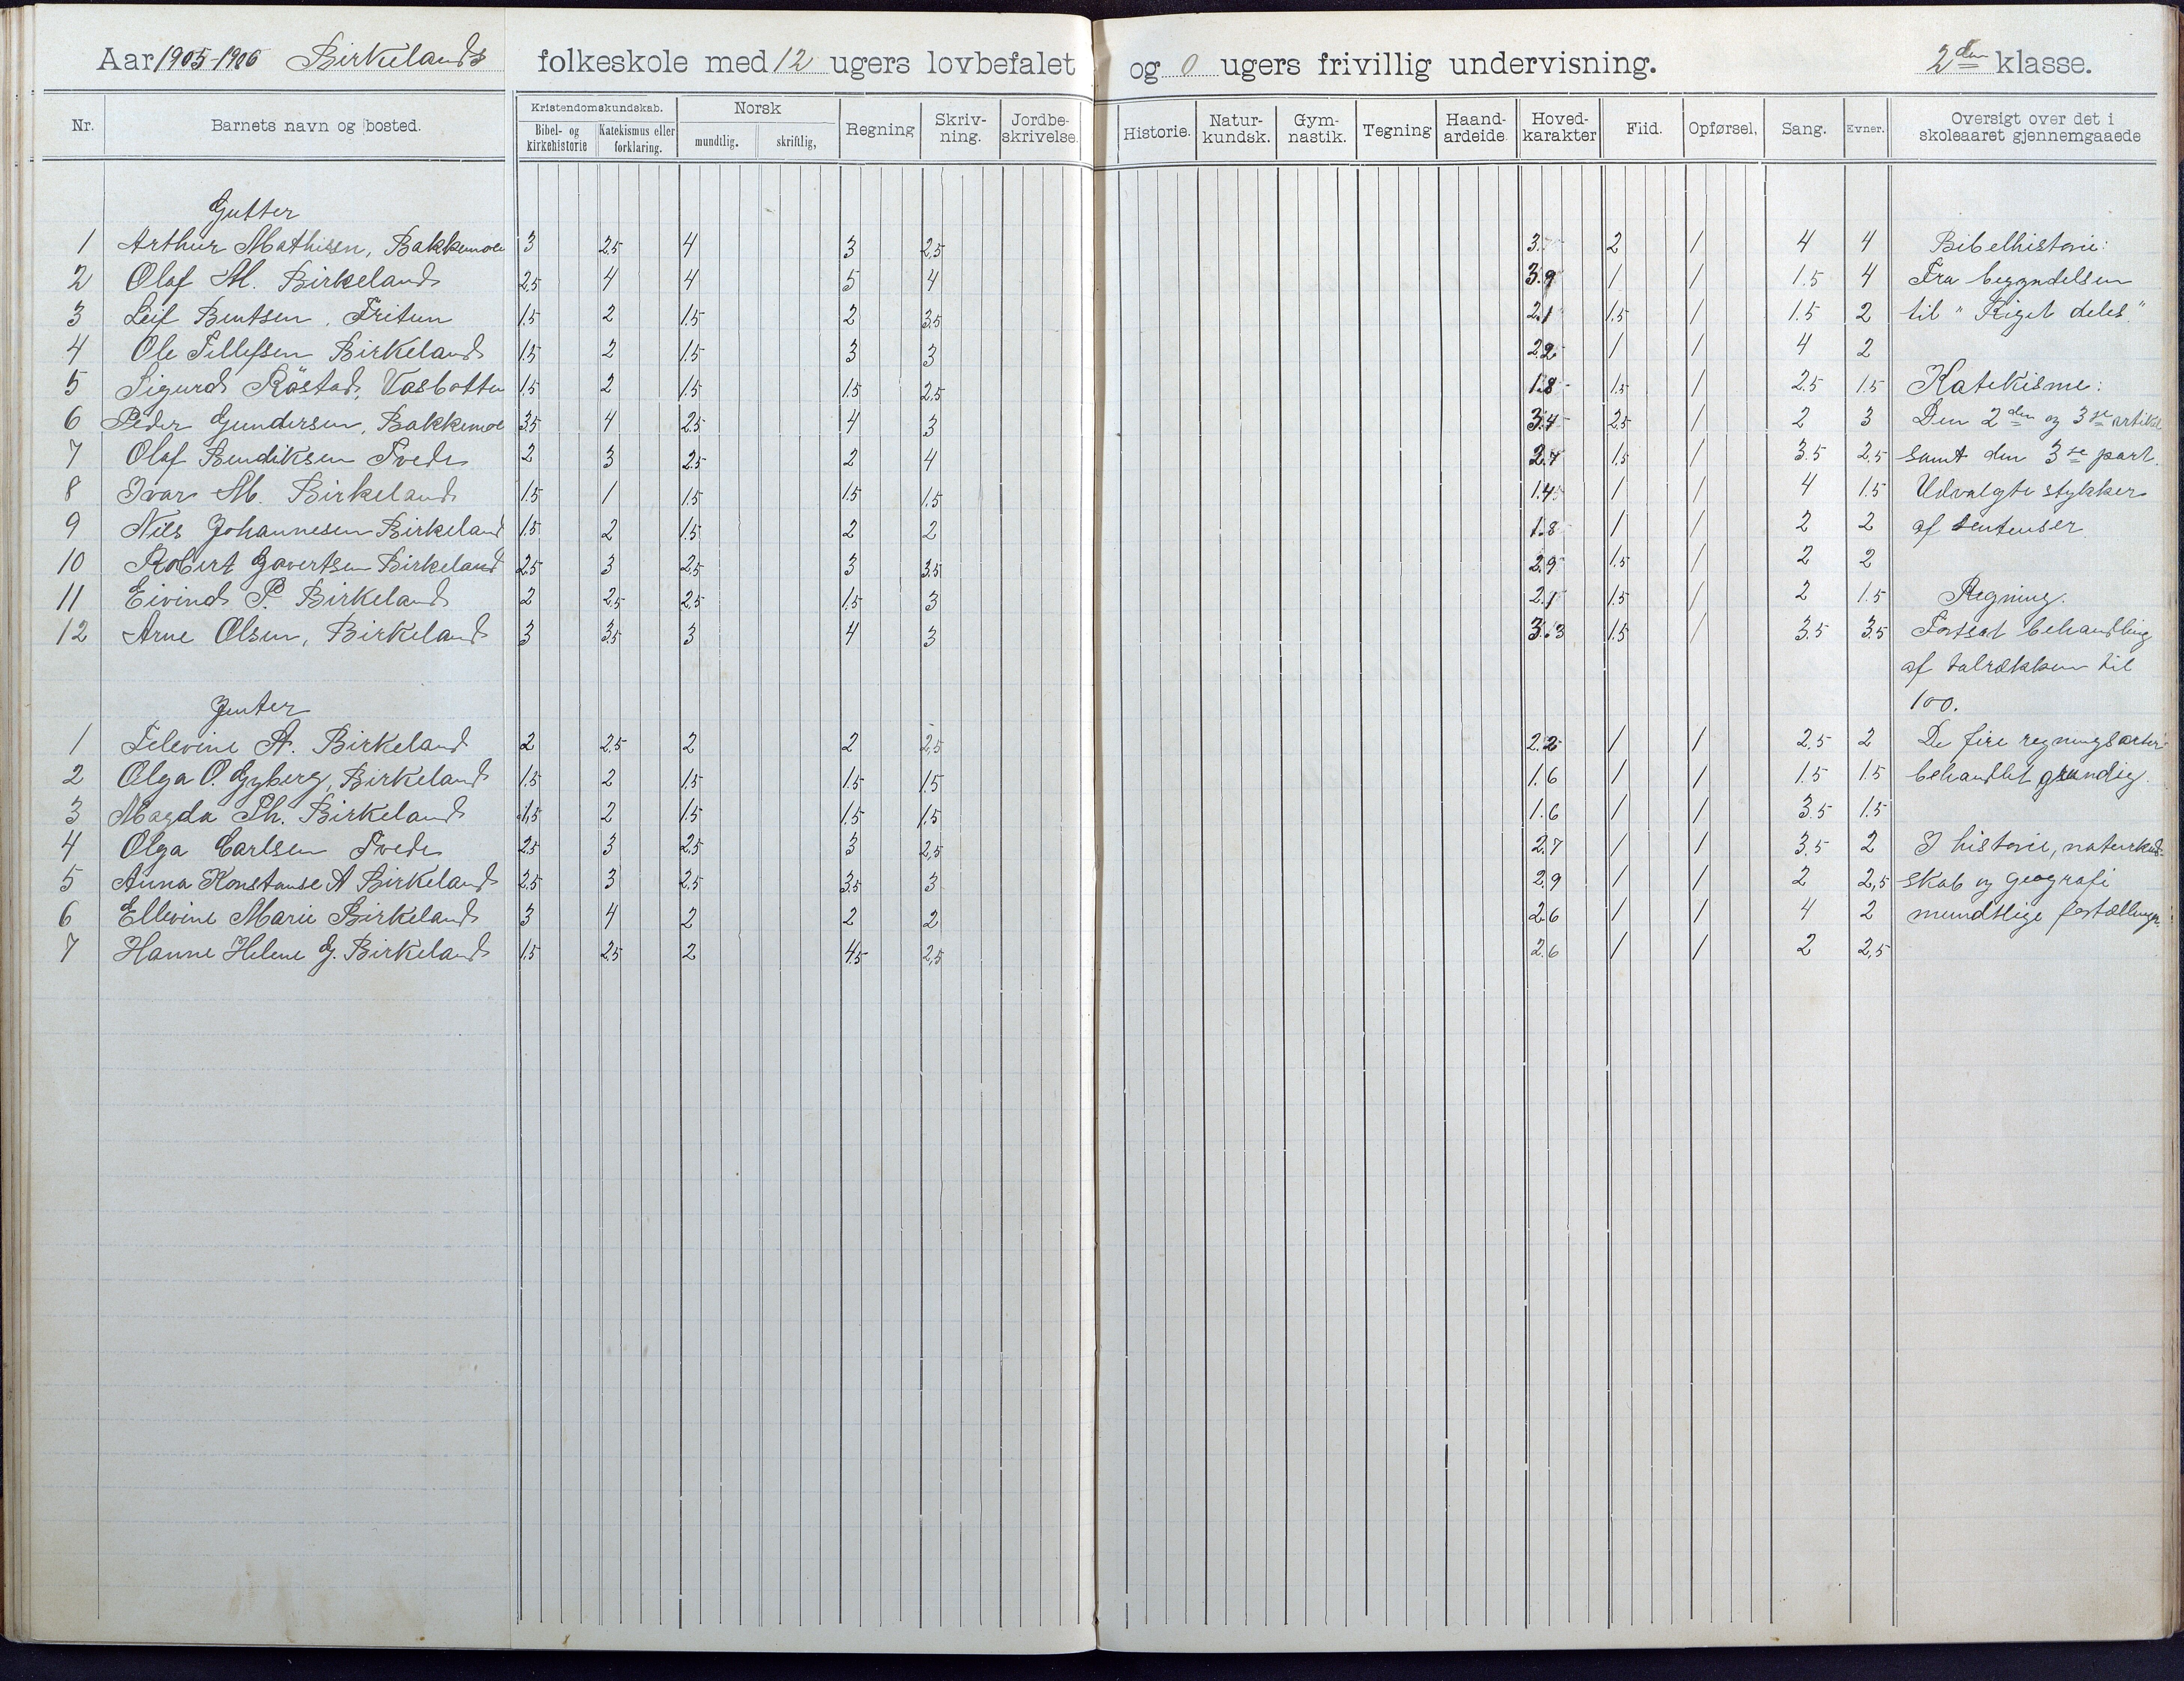 Aar 1905-1906 Birkelands folkeskole med 12 ugers lovbefalet og 0 ugers frivillig undervisning. 2den klasse.
Nr. Barnets navn og bosted. Kristendomskundskab. Norsk Regning Skriv- ning. Jordbe- skrivelse. Historie. Natur- kundsk. Gym- nastik. Tegning Haand- arbeide. Hoved- karakter Flid. Opførsel. Sang. Evner. Oversigt over det i skoleaaret gjennemgaaede
Bibel- og kirkehistorie Katekismus eller forklaring. mundtlig. skriftlig,
Gutter
1 Arthur Mathisen, Bakkemoen 3 2,5 4 3 2,5 3. 2 1 4 4 Bibelhistorie:
2 Olaf M. Birkeland 2,5 4 4 5 4 3.9 1 1 1.5 4 Fra begyndelsen
3 Leif Bentsen, Fritun 1.5 2 1.5 2 3.5 2.1 1.5 1 1.5 2 til "Riget deles."
4 Ole Tellefsen Birkeland 1.5 2 1.5 3 3 2.2 1 1 4 2
5 Sigurd Röstad, Vasbotten 1.5 2 1.5 1.5 2,5 1.8 1.5 1 2.5 1.5 Katekisme:
6 Peder Gundersen, Bakkemoen 3.5 4 2.5 4 3 3.4 2.5 1 2 3 Den 2den og 3die artikel
7 Olaf Bendiksen Tvede 2 3 2.5 2 4 2.7 1.5 1 3.5 2.5 samt den 3die part.
8 Ivar M. Birkeland 1.5 1 1.5 1.5 1.5 1.4 1 1 4 1.5 Udvalgte stykker
9 Nils Johannesen Birkeland 1.5 2 1.5 2 2 1.8 1 1 2 2 af sentenser
10 Robert Govertsen Birkeland 2.5 3 2.5 3 3.5 2.9 1.5 1 2 2
11 Eivind P. Birkeland 2 2,5 2,5 1.5 3 2.1 1.5 1 2 1.5 Regning.
12 Arne Olsen, Birkeland 3 3.5 3 4 3 3.3 1.5 1 3.5 3.5 Fortsat behandling
af talrækken til
100.
Jenter
1 Televine A. Birkeland 2 2,5 2 2 2,5 2.2 1 1 2,5 2 De fire regningsarter
2 Olga O. Gyberg, Birkeland 1.5 2 1.5 1.5 1.5 1.6 1 1 1.5 1.5 behandlet grundig.
3 Magda Th. Birkeland 1.5 2 1.5 1.5 1.5 1.6 1 1 3.5 1.5
4 Olga Carlsen Tvede 2.5 3 2.5 3 2,5 2.7 1 1 3.5 2 I historie, naturkund-
5 Anna Konstanse A Birkeland 2.5 3 2.5 3.5 3 2.9 1 1 2 2,5 skab og geografi
6 Ellevine Marie Birkeland 3 4 2 2 2 2.6 1 1 4 2 mundtlige fortællinger.
7 Hanne Helene G. Birkeland 1.5 2.5 2 4.5 2,5 2.6 1 1 2 2,5